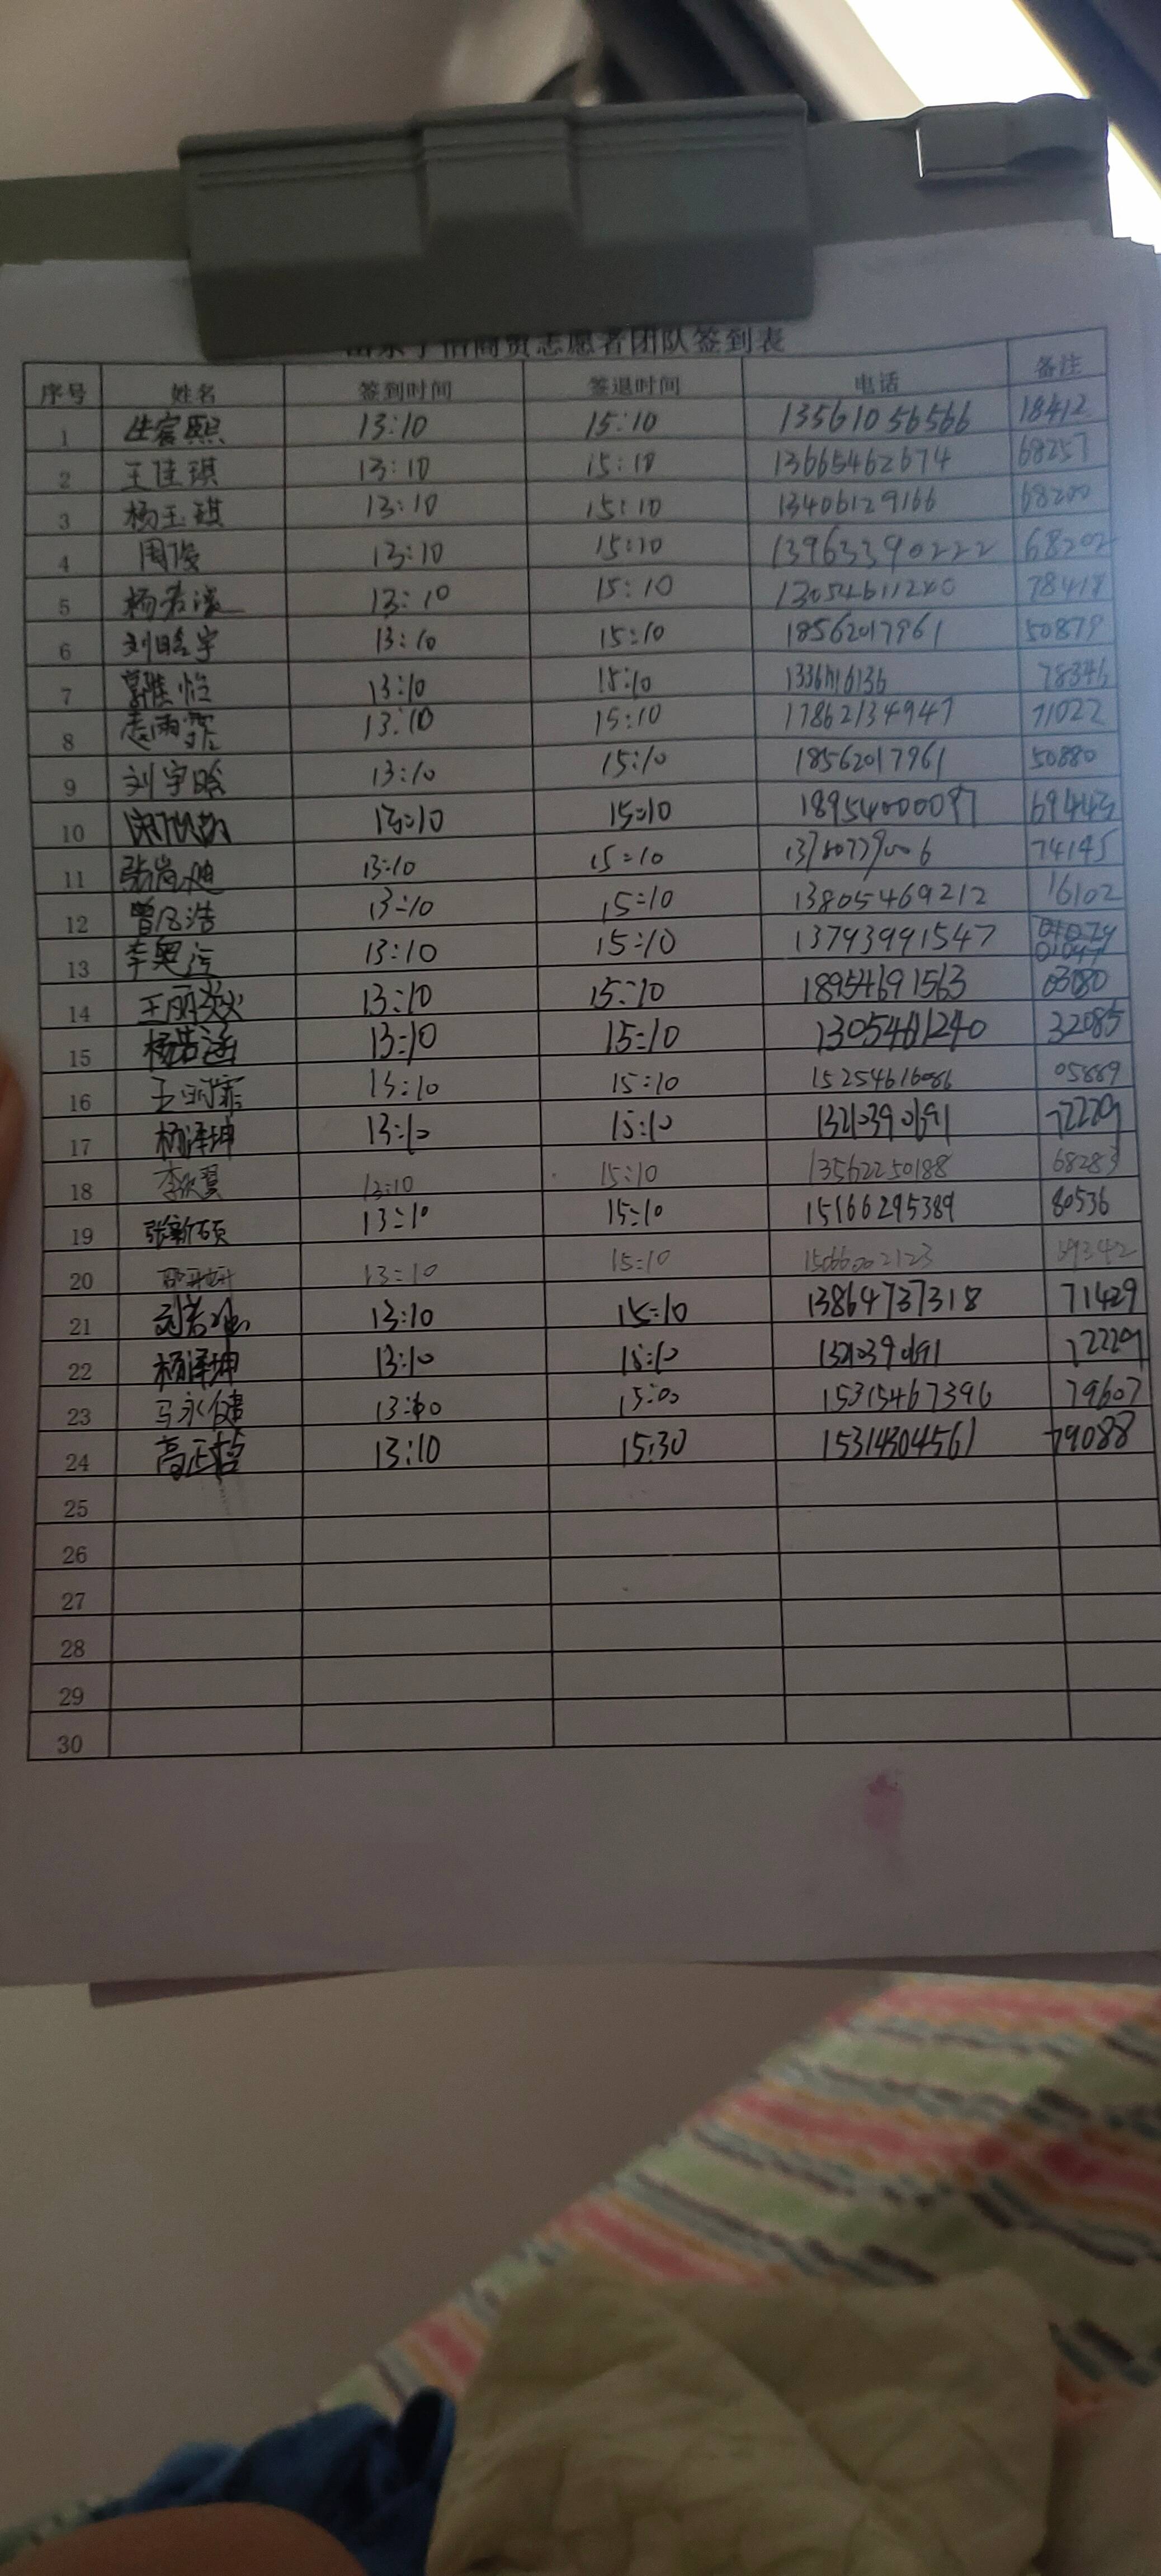 商贸志愿者团队签到表
序号 姓名 签到时间 签退时间 电话 备注
1 13:10 15:10 13561056566 18412
2 王佳琪 13:10 15:10 13665462674 68257
3 杨玉琪 13:10 15:10 13406129166 68200
4 周俊 13:10 15:10 13963390222 68202
5 13:10 15:10 13054611240 78418
6 刘晗宇 13:10 15:10 18562017961 50879
7 13:10 15:10 78346
8 13:10 15:10 17862134947 71022
9 刘宇晗 13:10 15:10 18562017961 50880
10 13:10 15:10 18954000097 69443
11 13:10 15:10 74145
12 曾凡浩 13:10 15:10 13805469212 16102
13 13:10 15:10 13793991547
14 13:10 15:10 18954691563 03080
15 杨若涵 13:10 15:10 32085
16 13:10 15:10 15254616086 05889
17 杨泽坤 13:10 15:10 72229
18 13:10 15:10 13562250188 68283
19 张新硕 13:10 15:10 15166295389 80536
20 13:10 15:10 15066002123 59342
21 13:10 15:10 13864737318 71429
22 杨泽坤 13:10 15:10 72229
23 马永健 15:00 15315467396 79607
24 高正哲 13:10 15:30 15314304561 79088
25
26
27
28
29
30